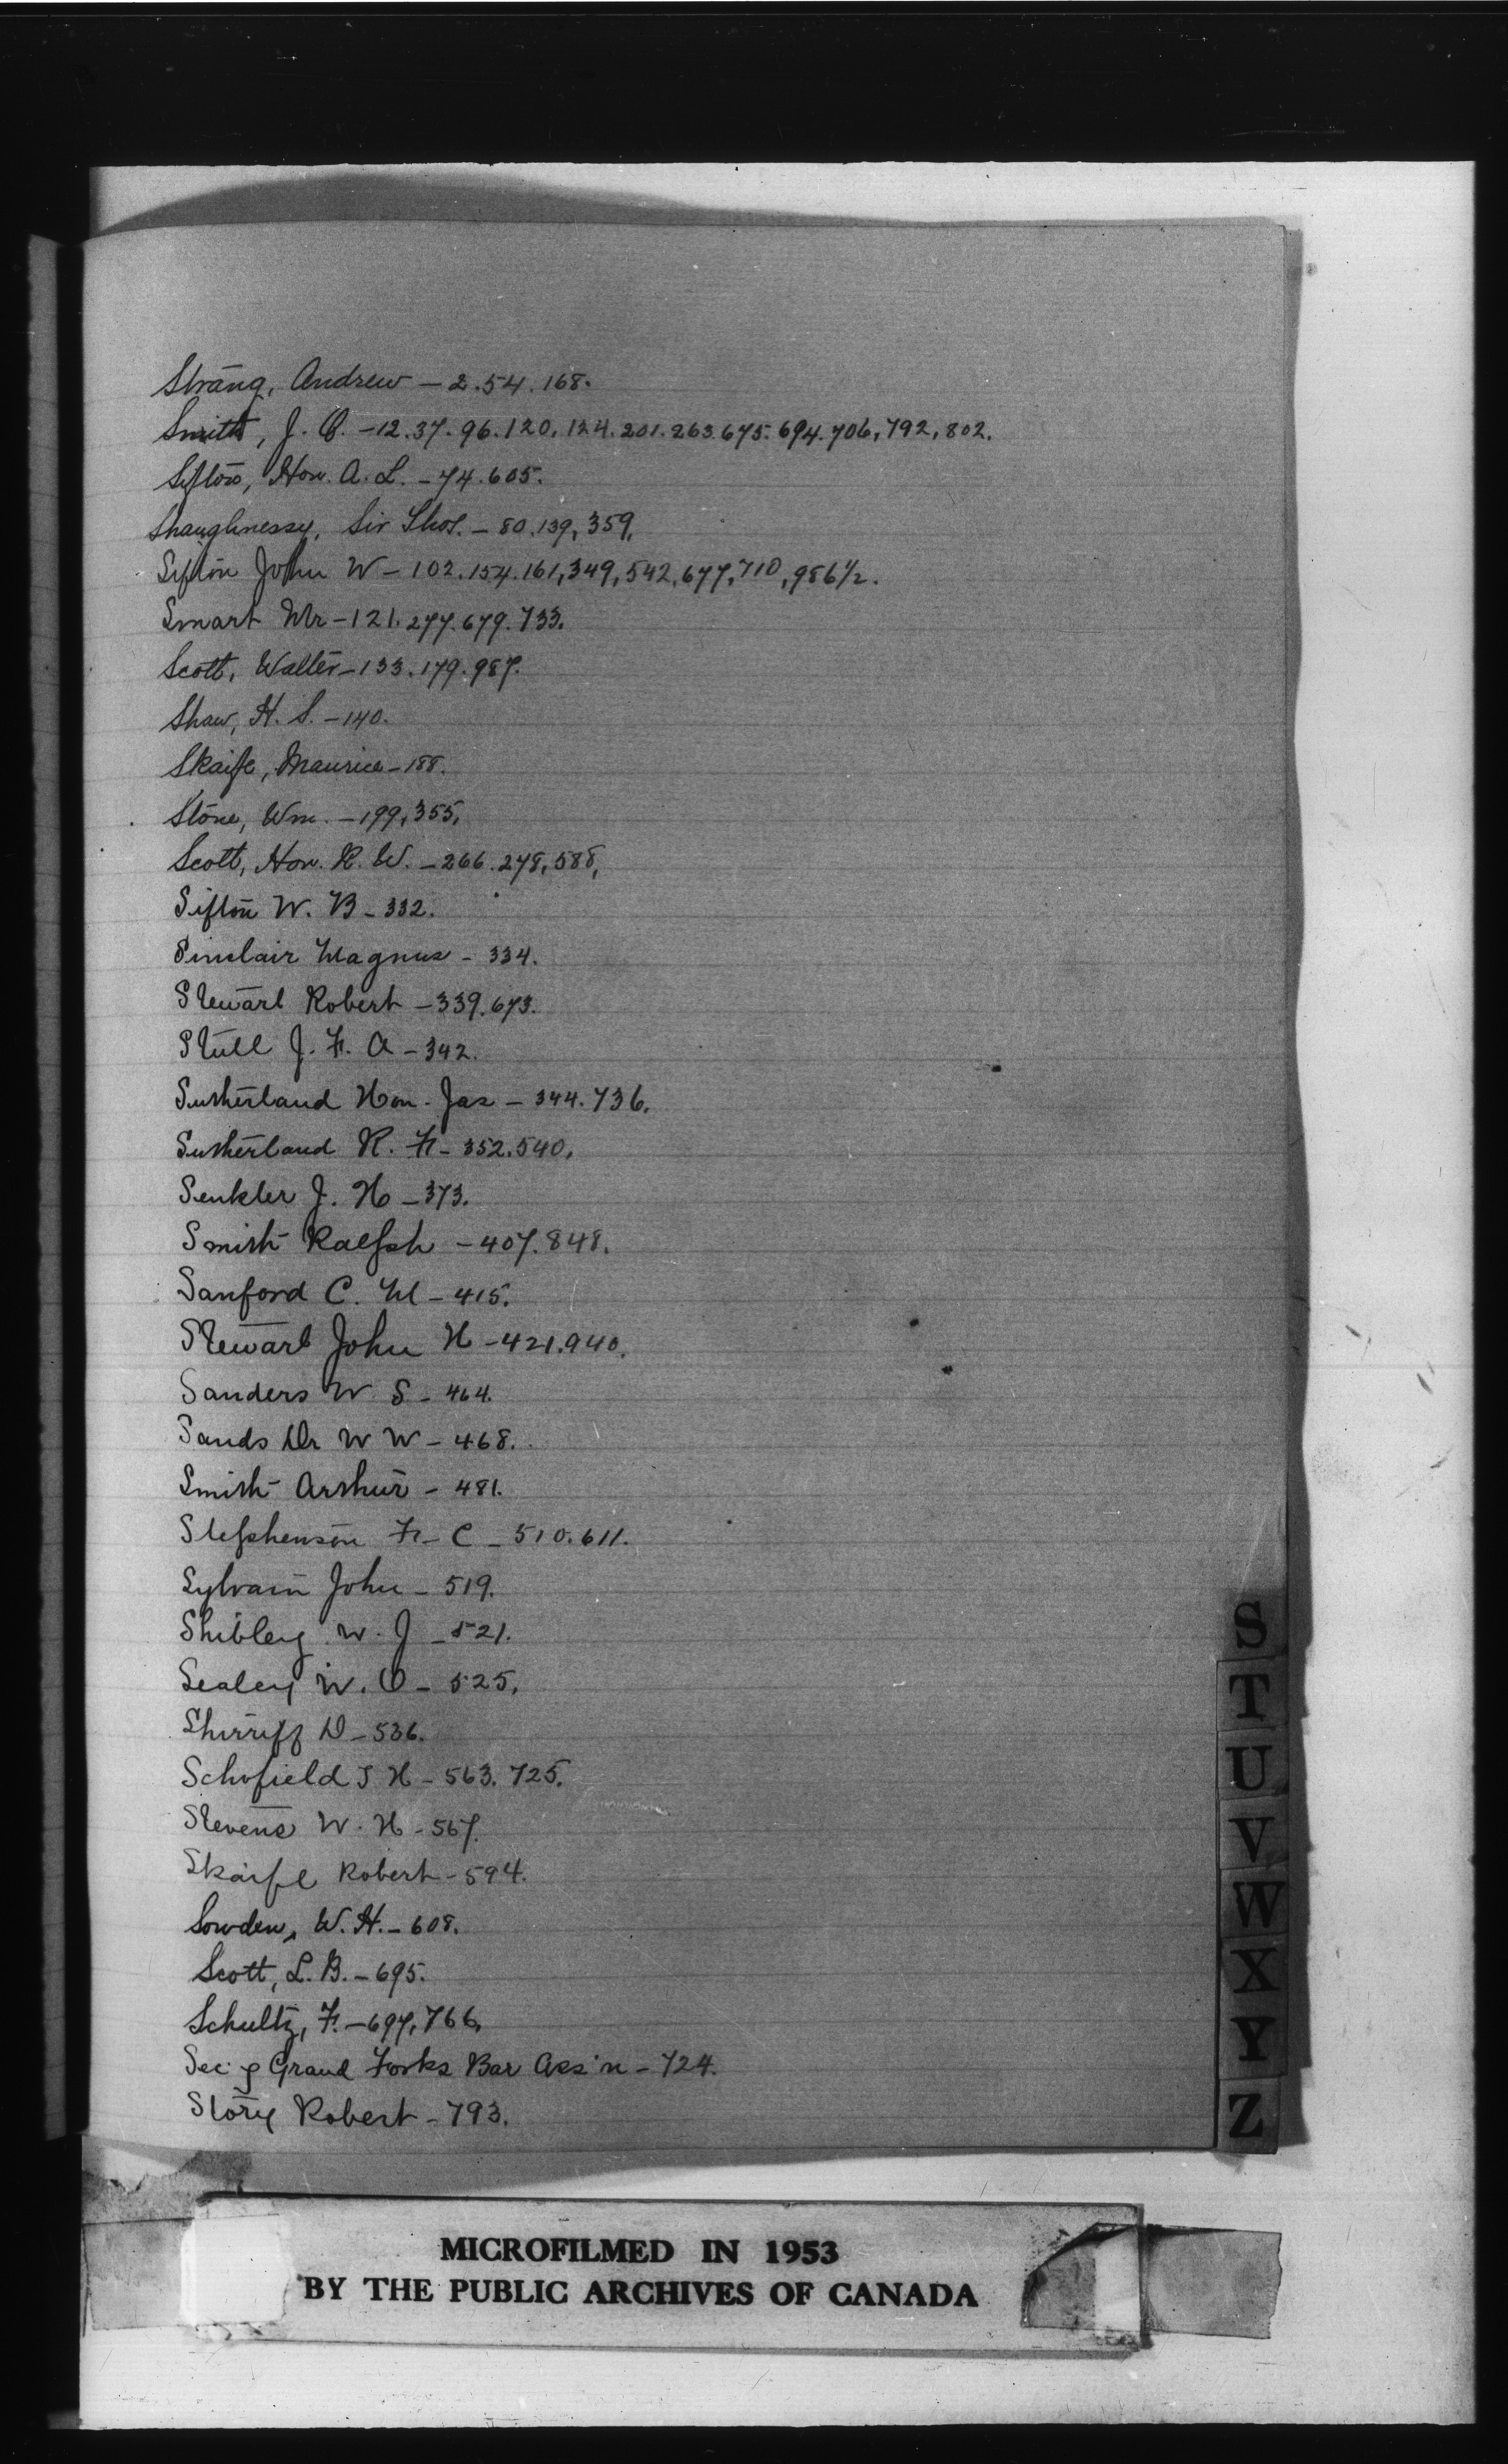 Strang, Andrew - 2.54.168.
Smith, J. O. - 12.37.96.120.124.201.263.675.694.706,792,802.
Sifton, Hon. A. L. - 74.605.
Shaughnessy, Sir Thos. - 80.139,359,
Sifton John W - 102.154.161,349,542,677,710,986½.
Smart Mr - 121.277.679.733.
Scott, Walter - 133.179.987.
Shaw, H. S. - 140.
Skaife, Maurice - 188.
Stone, Wm. - 199,355,
Scott, Hon. R. W. - 266.278,588,
Sifton W. B - 332.
Sinclair Magnus - 334.
Stewart Robert - 339.673.
Stull J. F. A - 342.
Sutherland Hon. Jas - 344.736.
Sutherland R. F - 352.540,
Senkler J. H - 373.
Smith Ralph - 407.848.
Sanford C. M - 415.
Stewart John H - 421.940.
Sanders W S - 464.
Sands Dr W W - 468.
Smith Arthur - 481.
Stephenson F. C - 510.611.
Sylvain John - 519.
Shibley W. J - 521.
Sealey W. O - 525,
Shirriff D - 536.
Schofield J H - 563.725.
Stevens W. H - 567.
Skaife Robert - 594.
Sowden, W. H. - 608.
Scott, L. B. - 695.
Schultz, F. - 697,766,
Sec'y Grand Forks Bar Ass'n - 724.
Story Robert - 793.
S
T
U
V
W
X
Y
Z
MICROFILMED IN 1953
BY THE PUBLIC ARCHIVES OF CANADA